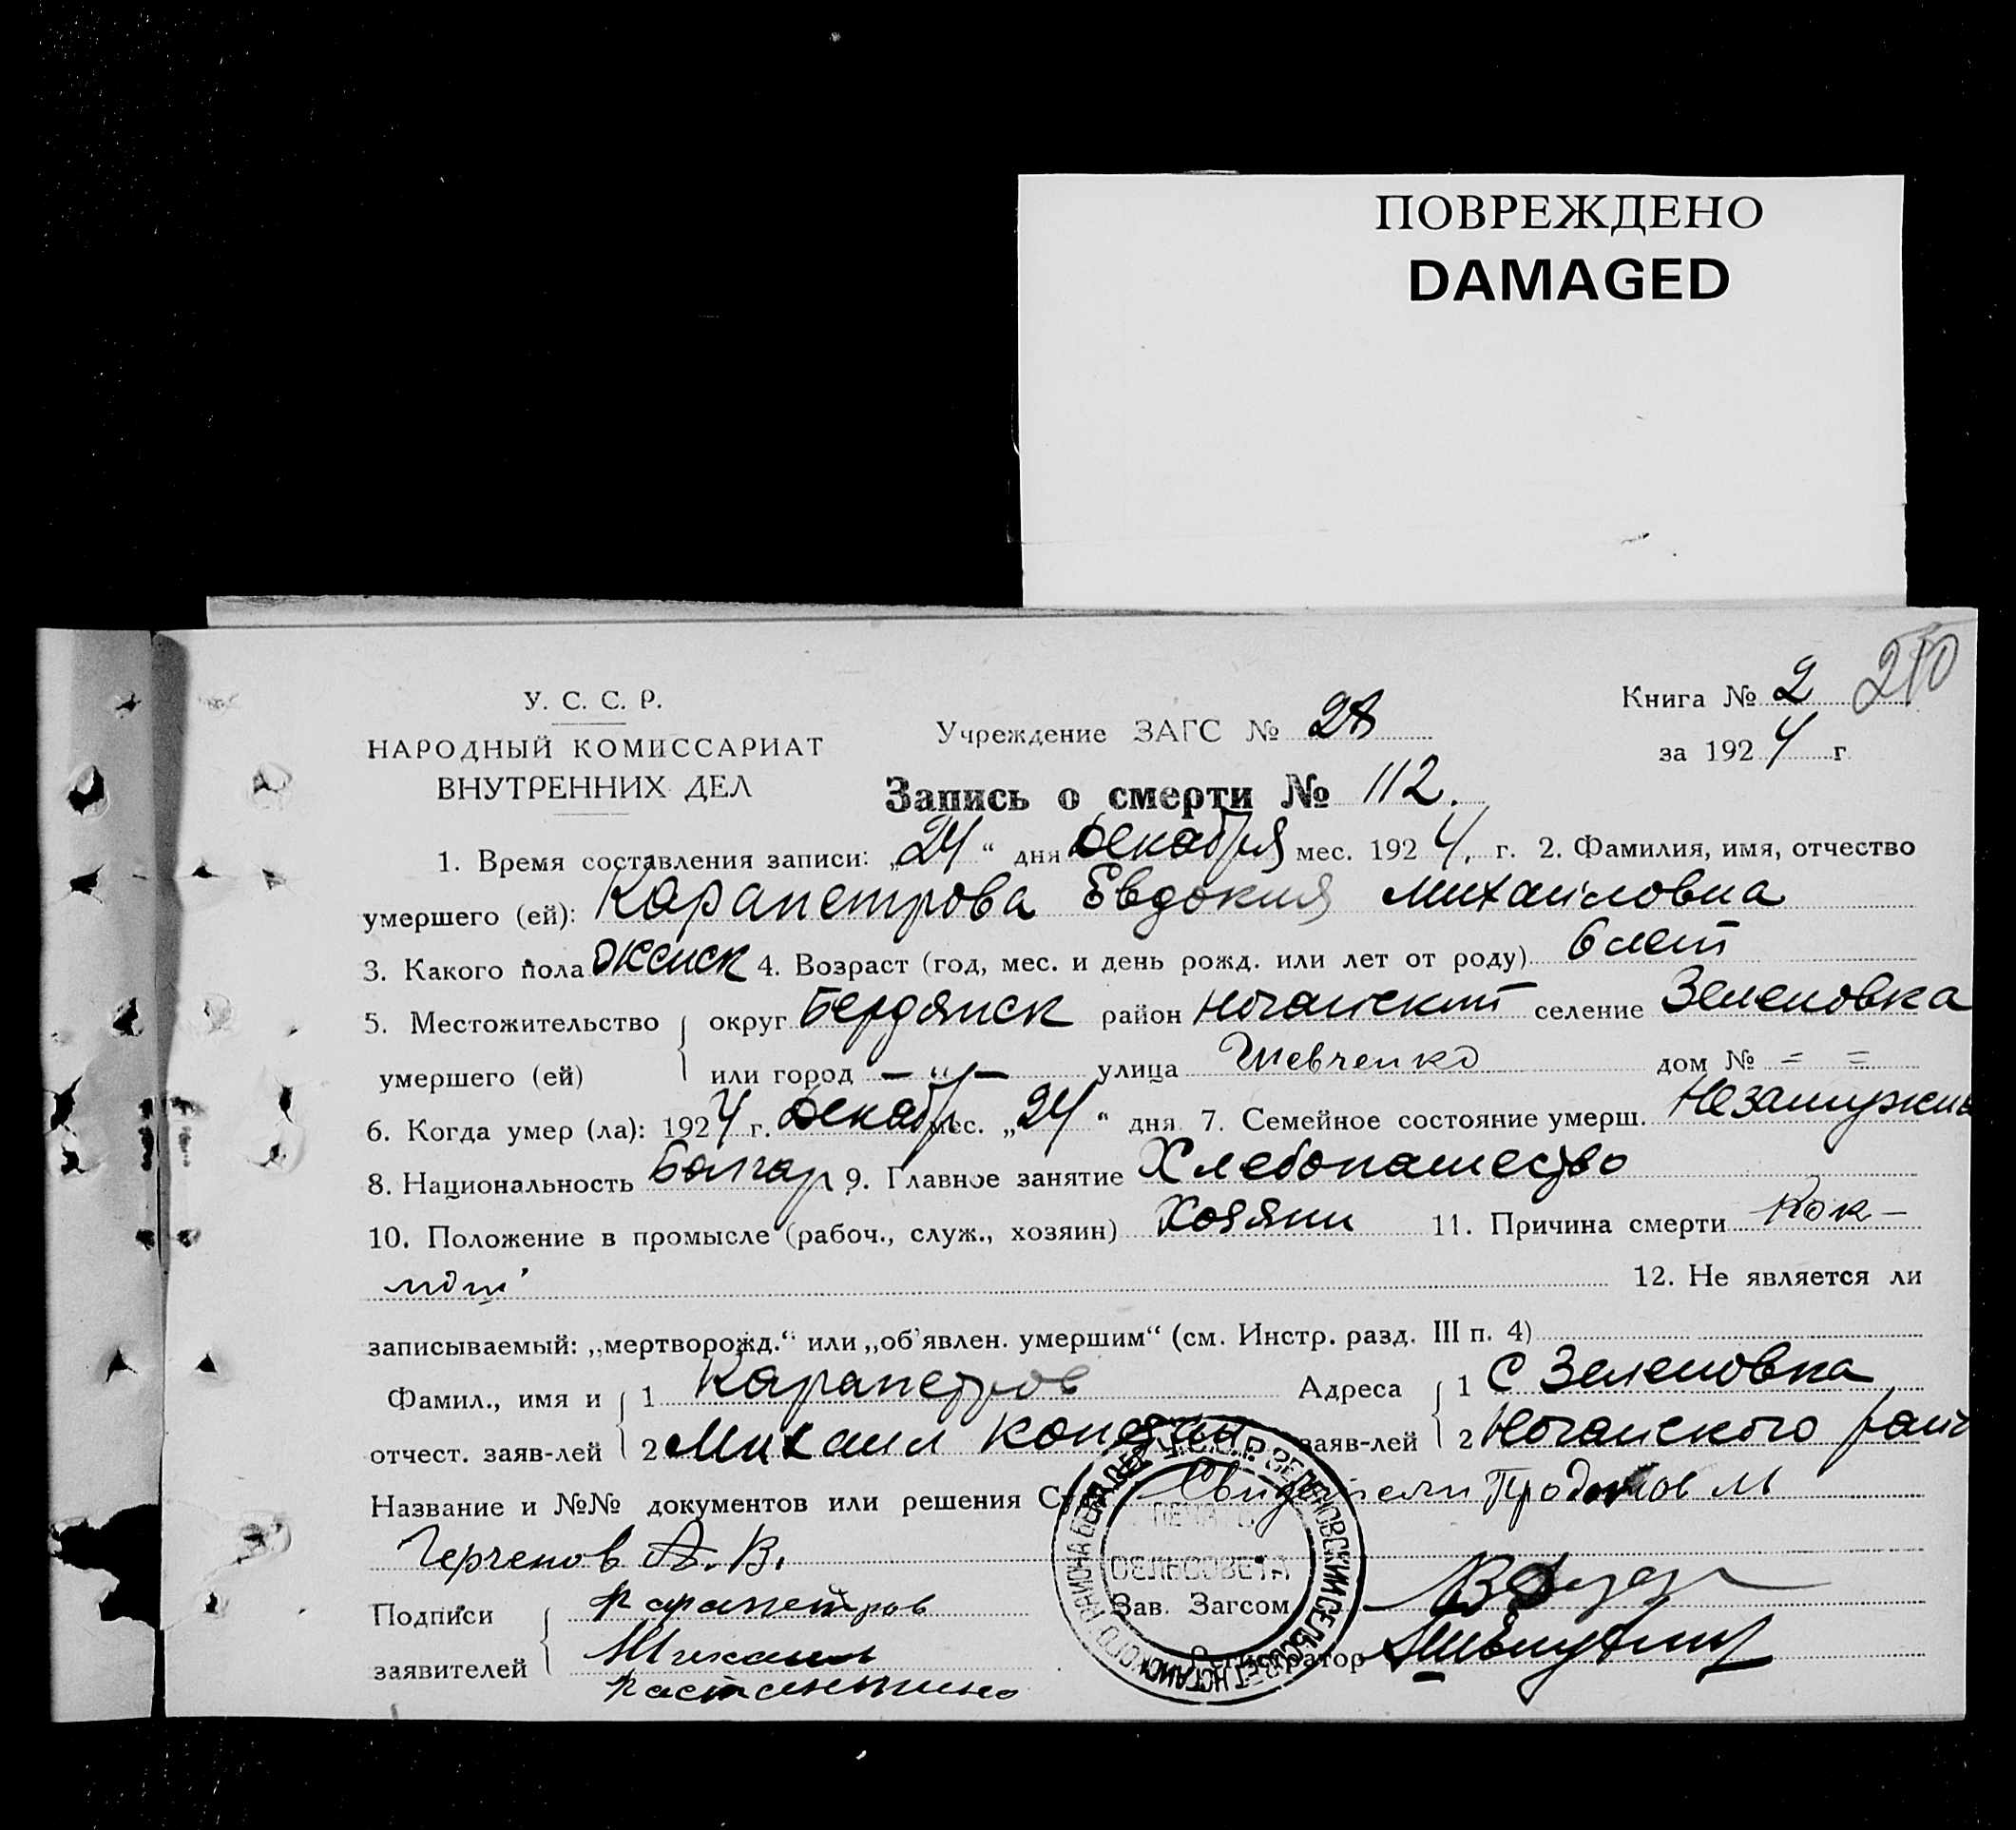 ПОВРЕЖДЕНО
DAMAGED
У. С. С. Р.
НАРОДНЫЙ КОМИССАРИАТ
ВНУТРЕННИХ ДЕЛ
Учреждение ЗАГС № 28
Книга № 2 210
за 1924 г.
Запись о смерти № 112.
1. Время составления записи: „24“ дня Декабря мес. 1924. г. 2. Фамилия, имя, отчество
умершего (ей): Карапетрова Евдокия Михайловна
3. Какого пола женск 4. Возраст (год, мес. и день рожд. или лет от роду) 6 лет
5. Местожительство округ Бердянск район Ногайский селение Зеленовка
умершего (ей) или город — „ — улица Шевченко дом № = =
6. Когда умер (ла): 1924 г. Декабр мес. „24“ дня 7. Семейное состояние умерш. Незамужня
8. Национальность Болгар 9. Главное занятие Хлебопашество
10. Положение в промысле (рабоч., служ., хозяин) Хозяин 11. Причина смерти Кок-
люш
12. Не является ли
записываемый: „мертворожд.“ или „об’явлен. умершим“ (см. Инстр. разд. III п. 4)
Фамил., имя и 1 Карапетров Адреса 1 С Зеленовка
отчест. заяв-лей 2 Михаил заяв-лей 2 Ногайского
Название и №№ документов или решения Свидетели
А. В.
Подписи Карапетров
заявителей Михаил
Зав. Загсом
Регистратор
ПЕЧАТЬ
СЕЛЬСОВЕТА